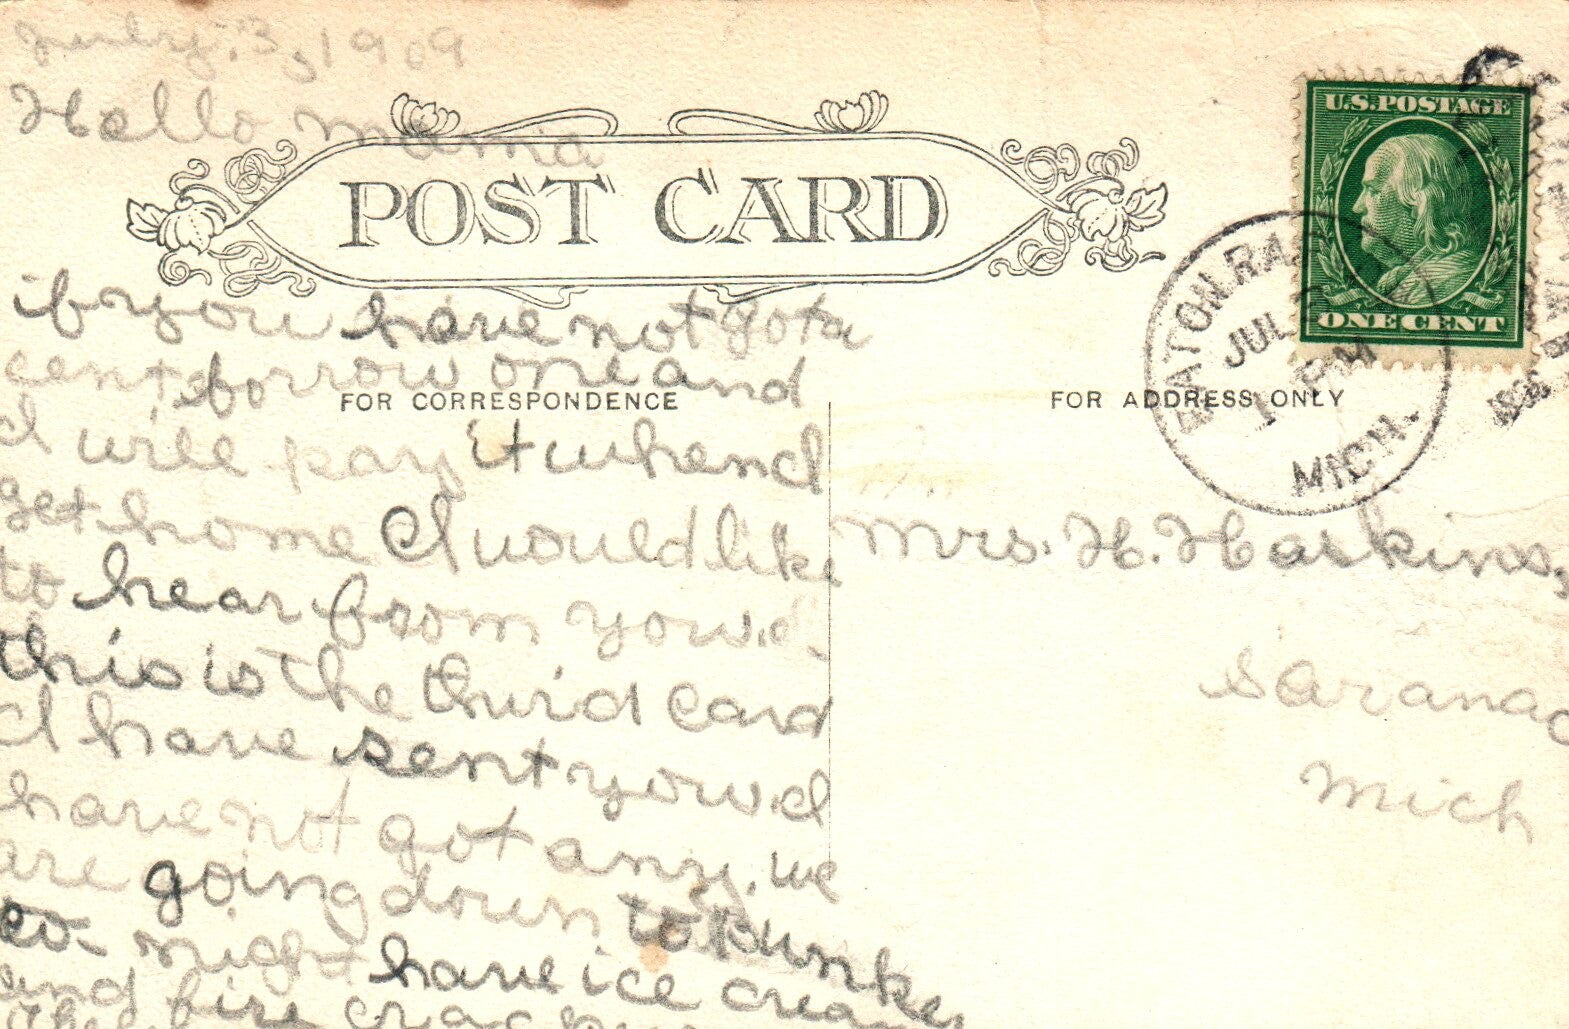 July, 3, 1909
Hello mama
POST CARD
U.S. POSTAGE
ONE CENT
EATON RA
JUL
1 PM
MICH.
FOR CORRESPONDENCE
FOR ADDRESS ONLY
if you have not got a
cent, borrow one and
I will pay it when I
get home I would like
to hear from you.
this is the third card
I have sent you. I
have not got any. we
are going down to
to-night have ice cream
and fire crackers
Mrs. H. Haskins,
Saranac
Mich